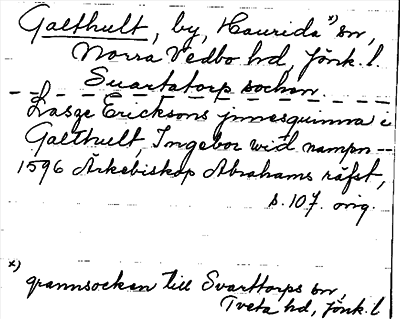 Galthult, by, Haurida x) sn,
Norra Vedbo hd, Jönk. l.
Suartatorp sochen.
Lasze Ericksons jnnesquinna i
Galthult, Ingebor wid nampn --
1596 Ärkebiskop Abrahams räfst,
s. 107. orig.
x)
grannsocken till Svarttorps sn
Tveta hd, Jönk. l